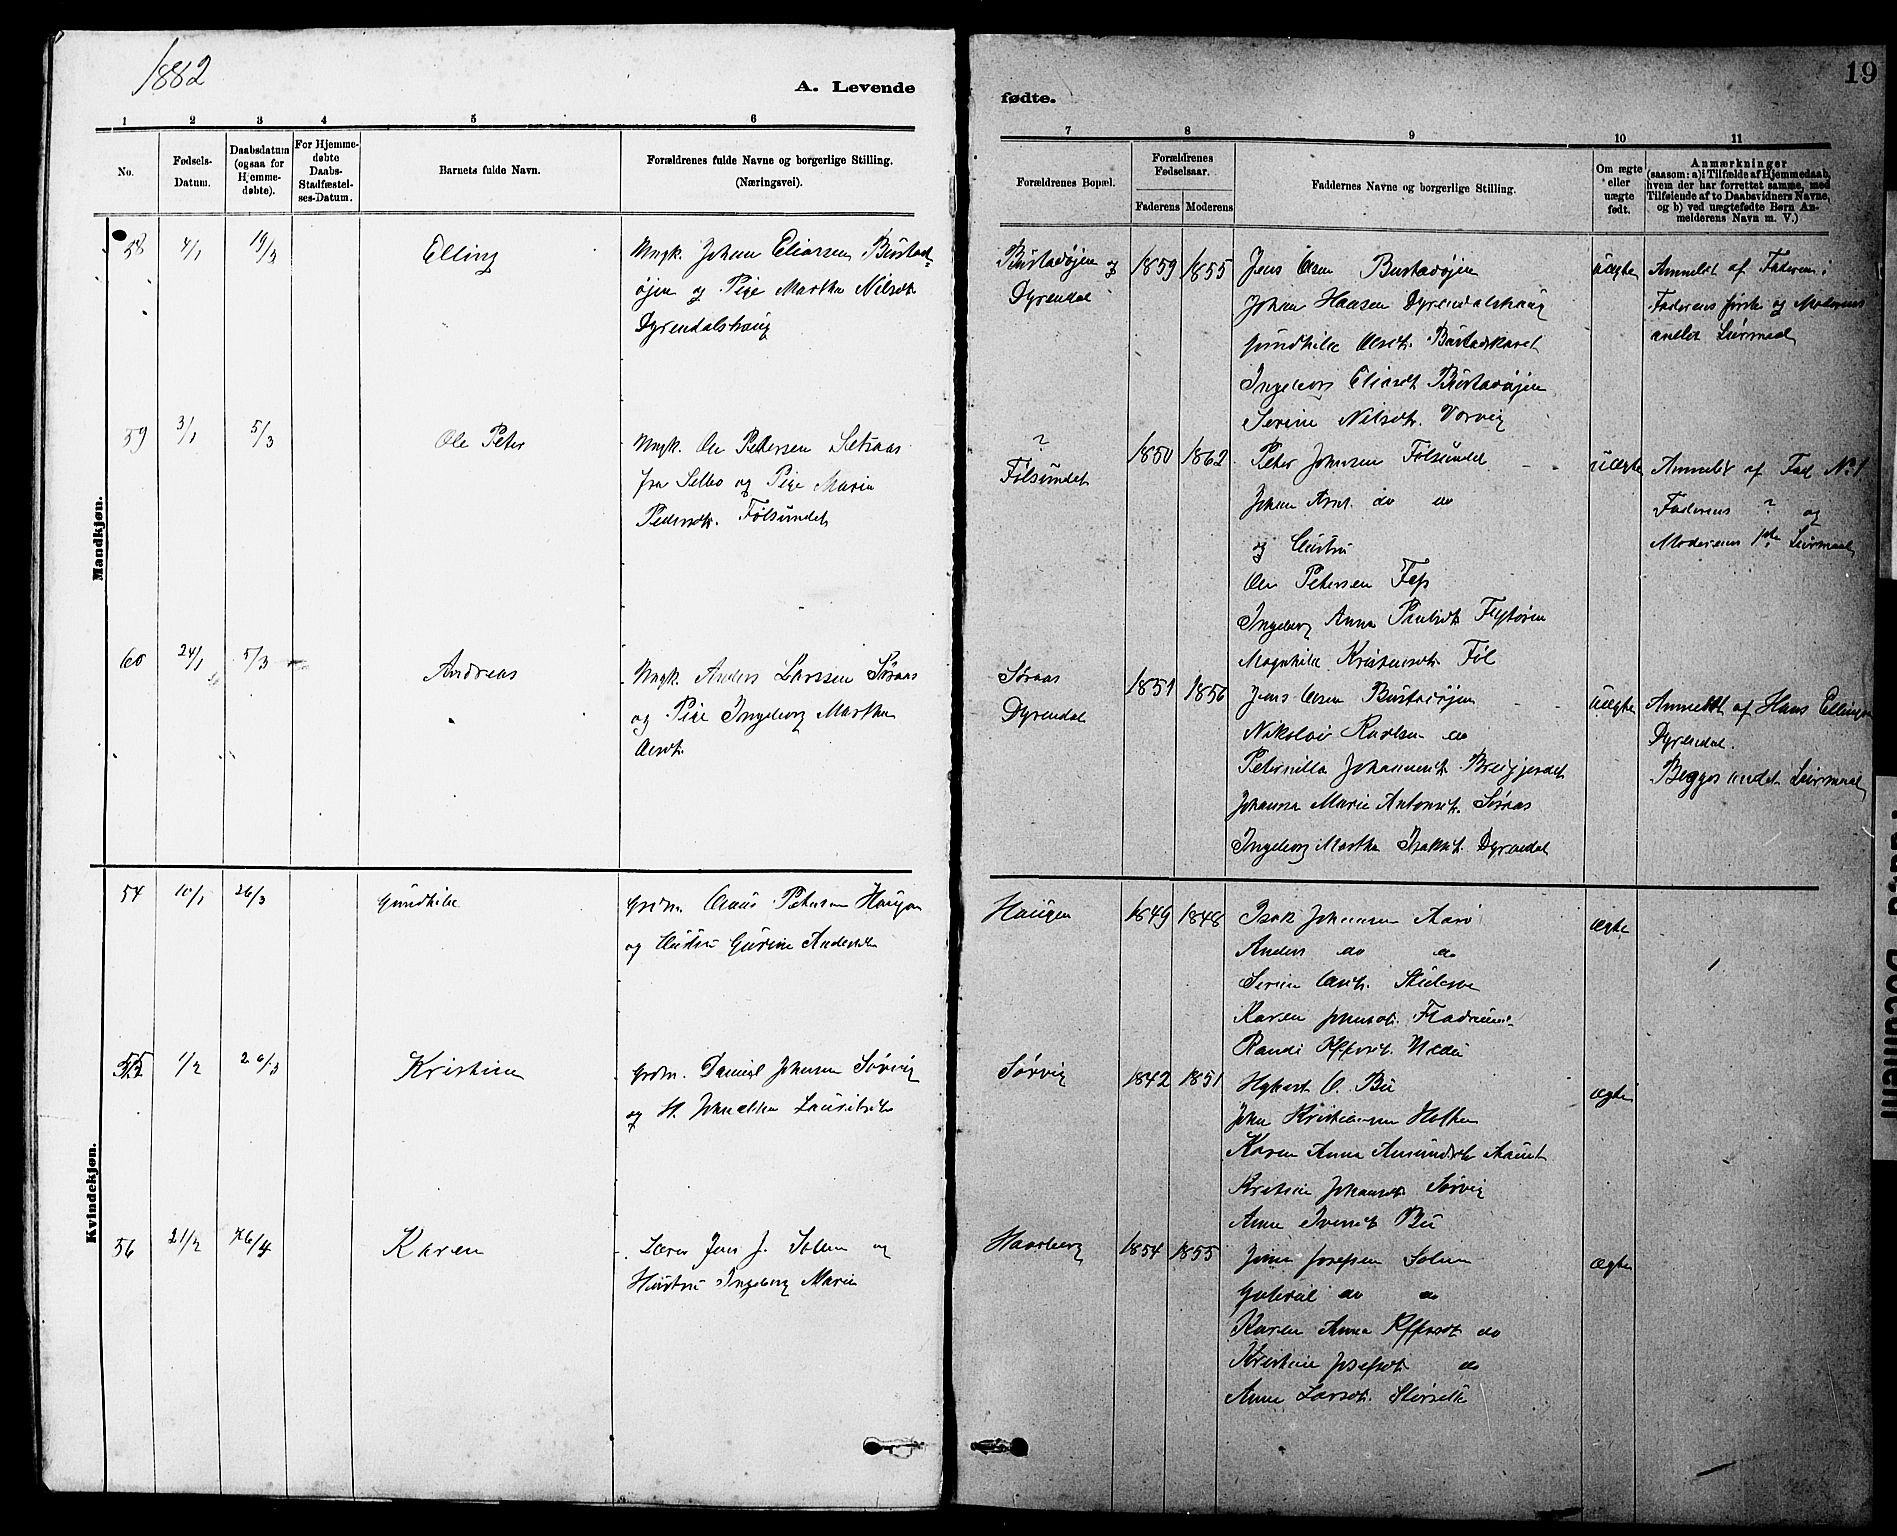 1882
A. Levende
fødte.
19
1 2 3 4 5 6
7 8 9 10 11
No.
Fødsels-
Datum.
Daabsdatum
(ogsaa for
Hjemme-
døbte).
For Hjemme-
døbte
Daabs-
Stadfæstel-
ses-Datum.
Barnets fulde Navn.
Forældrenes fulde Navne og borgerlige Stilling.
(Næringsvei).
Forældrenes Bopæl.
Forældrenes
Fødselsaar.
Faderens Moderens
Faddernes Navne og borgerlige Stilling.
Om ægte
eller
uægte
født.
Anmærkninger
(saasom: a) i Tilfælde af Hjemmedaab,
hvem der har forrettet samme, med
Tilføiende af to Daabsvidners Navne,
og b) ved uægtefødte Børn An-
melderens Navn m. V.)
Mandkjøn.
58 4/1 19/3 Elling
Ungk. Johan Eliasen Bustad-
øjen og Pige Martha Nilsdt.
Dyrendalshaug
Bustadøjen og
Dyrendal
1859 1855
Jens Olsen Bustadøjen
Johan Hansen Dyrendalshaug
Gundhild Olsdt. Bustadskaret
Ingeborg Eliasdt Bustadøjen
Serine Nilsdt. Vorvig
uægte
Anmeldt af Faderen;
Faderens første og Moderens
andet Leirmaal
59 3/1 5/3 Ole Peter
Ungk. Ole Pedersen Setsaas
fra Selbo og Pige Maria
Pedersdt. Følsundet
?
Følsundet
1850 1862
Peter Johnsen Følsundet
Johan Arnt do do
og Hustru
Ole Petersen
Ingeborg Anna
Magnhild Kristensdt. Føl
uægte
Anmeldt af Fad. No 1
Faderens ? og
Moderens 1ste Leirmaal
60 24/1 5/3 Andreas
Ungk. Anders Larssen Søraas
og Pige Ingeborg Martha
Olsdt.
Søraas
Dyrendal
1851 1856
Jens Olsen Bustadøjen
Nikolai Karlsen do
Peternilla Johannesdt. Breigjerdet
Johanna Marie Antonsdt. Søraas
Ingeborg Martha Isaksdt. Dyrendal
uægte
Anmeldt af Hans Ellingsen
Dyrendal.
Begges andet Leirmaal
Kvindekjøn.
54 10/1 26/3 Gundhild
Grdm. Claus Petersen Haugen
og Hustru Gurine Andersdt.
Haugen
1849 1848
Isak Johansen Aarø
Anders do do
Serine
Karen Johnsdt.
Randi
ægte
55 1/2 26/3 Kristine
Grdm. Daniel Johnsen Sørvig
og H. Lauritsdt.
Sørvig
1842 1851
O. Bu
John Kristiansen
Karen Anna Amundsdt.
Kristine Johansdt. Sørvig
Anne Iversdt. Bu
ægte
56 21/2 Karen
Lærer Jens J. Solem og
Hustru Ingeborg Marie
Haarberg
1854 1855
Josefsen Solem
Gabriel do do
Karen Anna do
Kristine Josefsdt. do
Anne Larsdt.
ægte